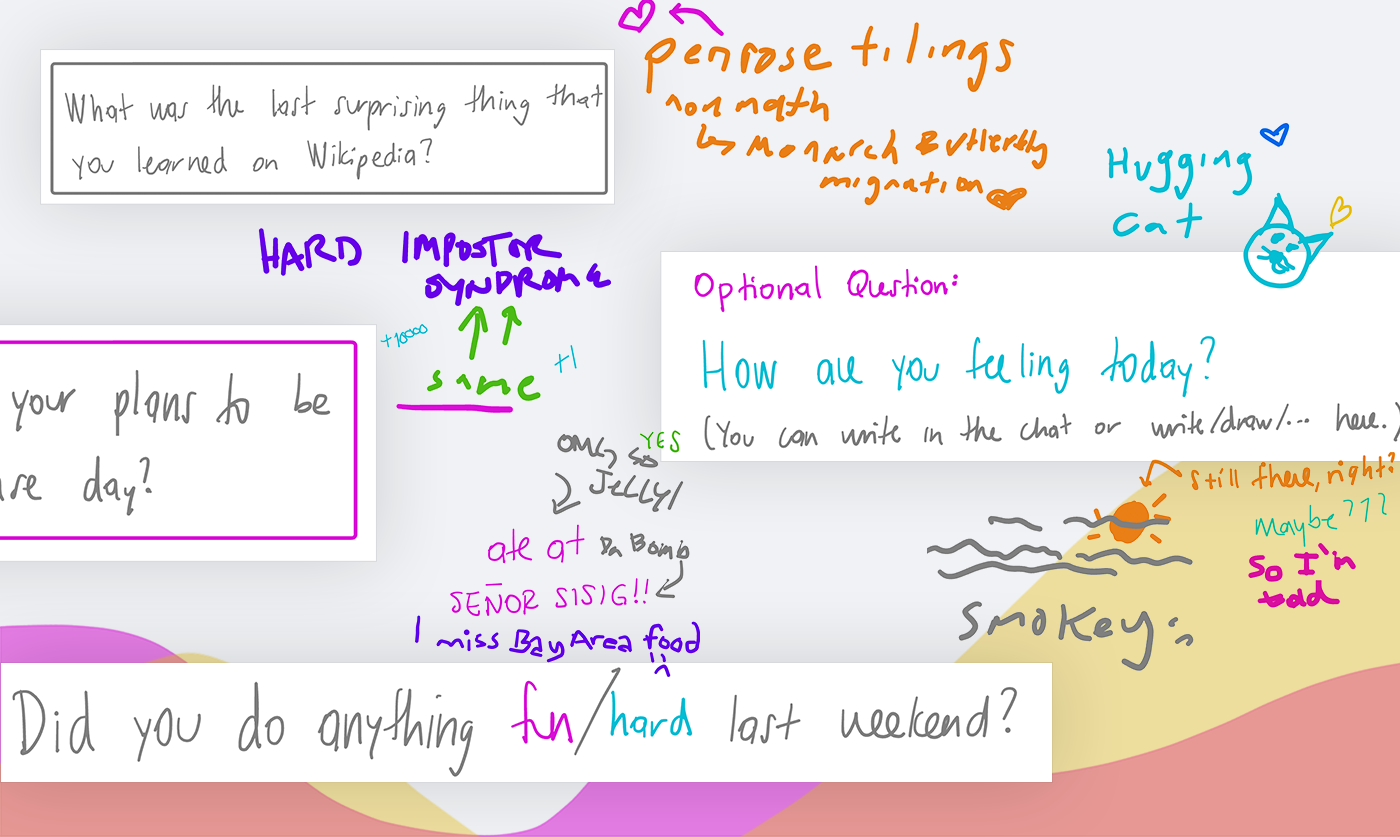 What was the last surprising thing that
you learned on Wikipedia?
penrose tilings
non math
Monarch Butterfly
migration
Hugging
cat
HARD IMPOSTOR
SYNDROME
+10000
same
+1
Optional Question:
How are you feeling today?
(You can write in the chat or write/draw/... here.)
your plans to be
day?
OMG so
YES
JELLY!
ate at Da Bomb
SEÑOR SISIG!!
I miss Bay Area food
still there, right?
Maybe???
So I'm
Smokey
Did you do anything fun/hard last weekend?